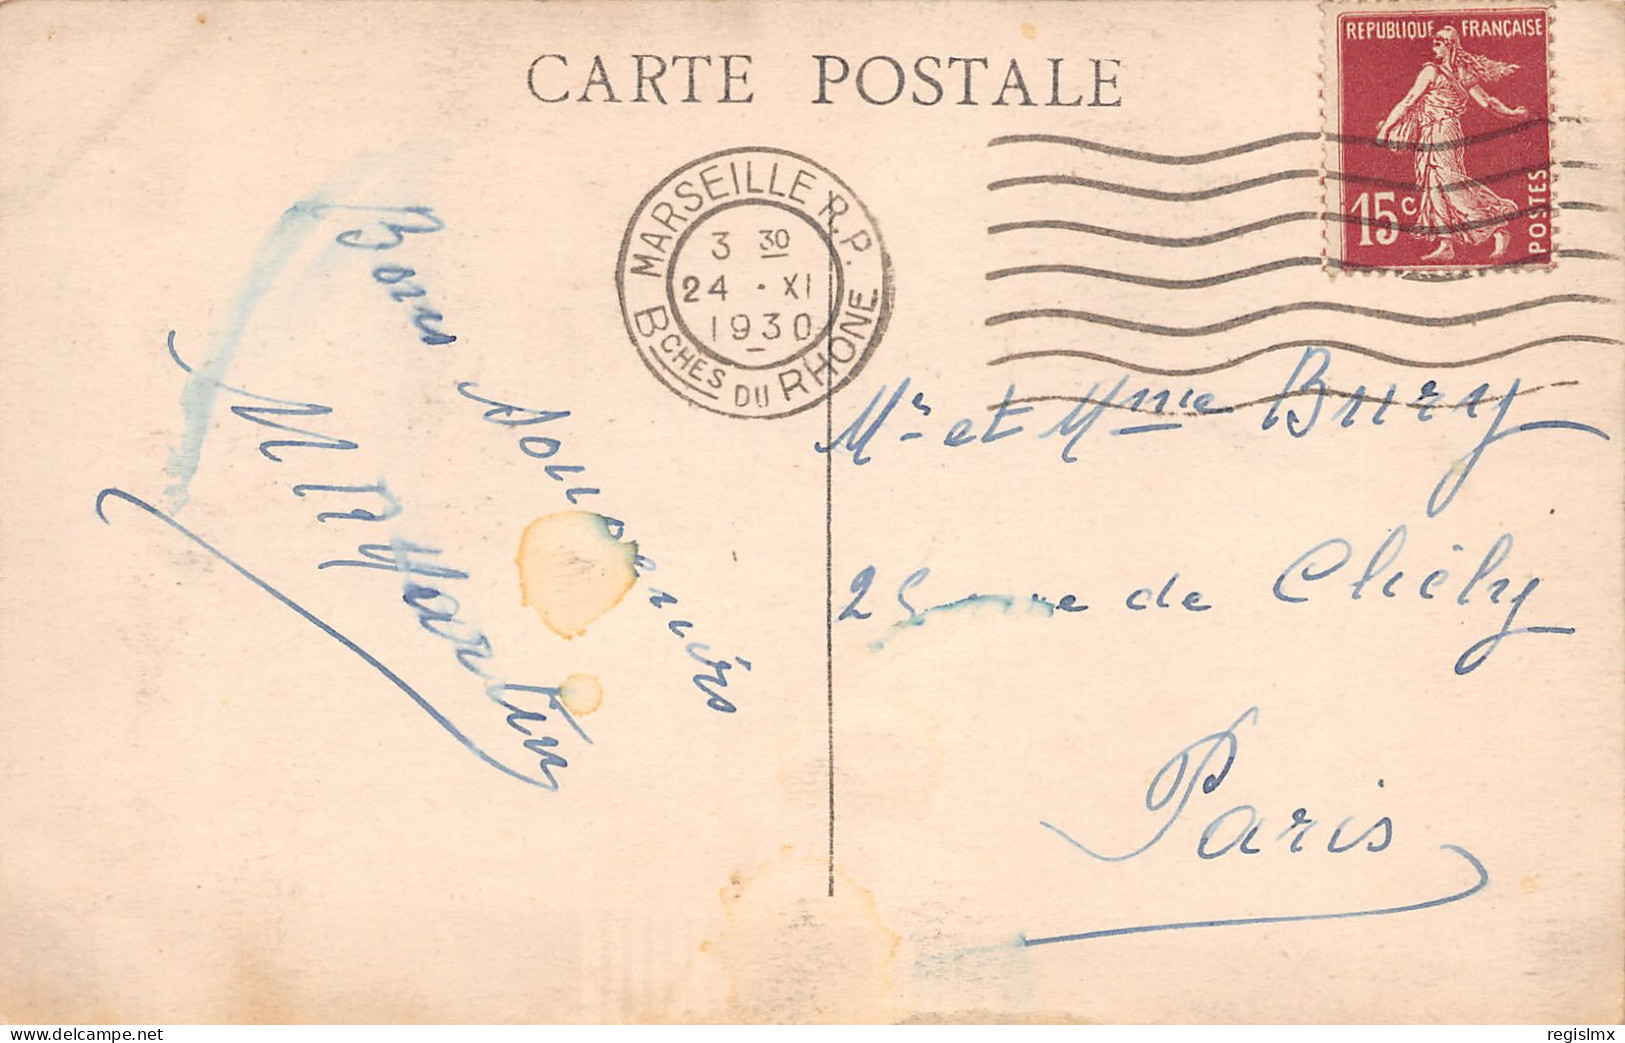 CARTE POSTALE
REPUBLIQUE FRANÇAISE
15c
POSTES
MARSEILLE R.P.
3 30
24 · XI
1930
BCHES DU RHONE
Bons souvenirs
M Martin
Mr et Mme Bury
rue de Clichy
Paris
www.delcampe.net
regislmx